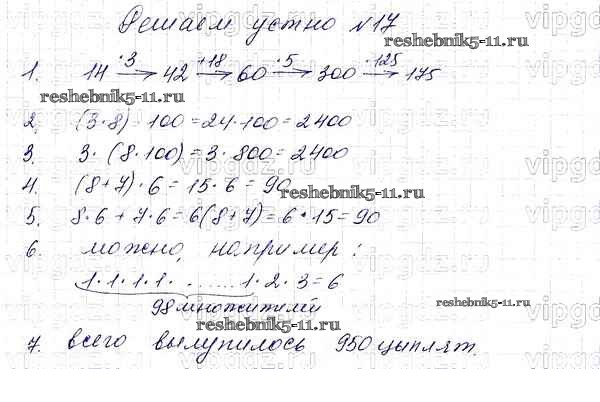 Решаем устно №17
1. 14 →·3 42 →+18 60 →·5 300 →·125 175
reshebnik5-11.ru
2. (3·8) · 100 = 24·100 = 2400
3. 3 · (8·100) = 3·800 = 2400
4. (8+7)·6 = 15·6 = 90
reshebnik5-11.ru
5. 8·6 + 7·6 = 6(8+7) = 6·15 = 90
6. можно, например:
1·1·1·1· ....... 1·2·3 = 6
98 множителей
reshebnik5-11.ru
reshebnik5-11.ru
7. всего вылупилось 950 цыплят.